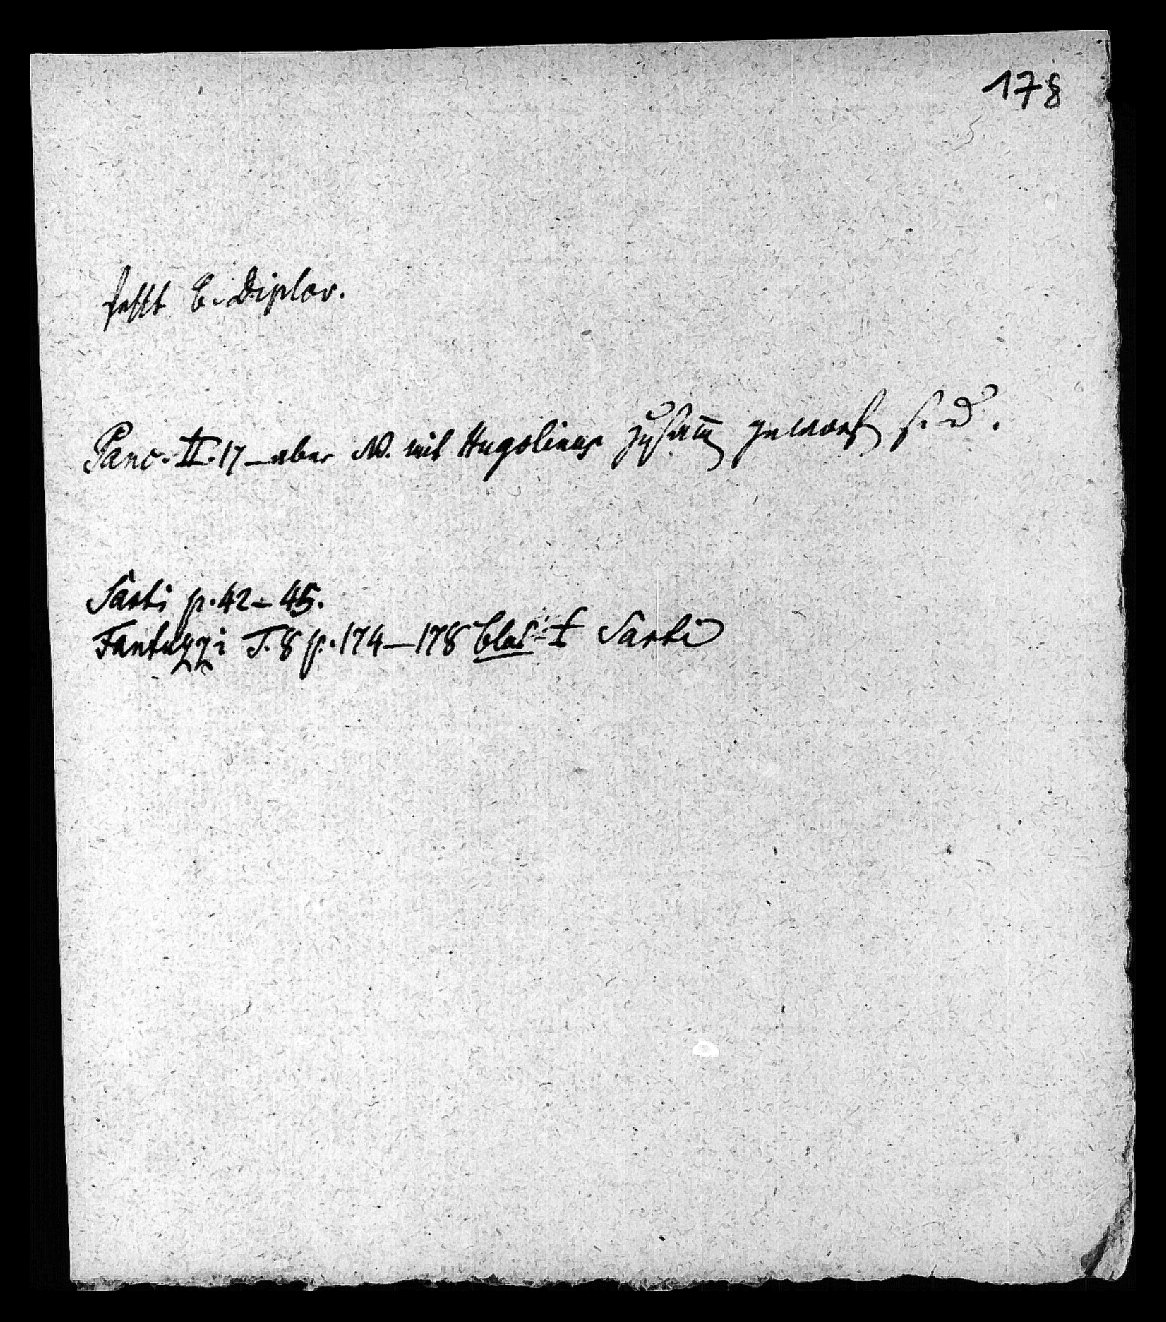 178
fehlt b. Diplov.
Panc. II. 17 – aber N. mit Hugolinus zusam̄ geworf s. d.
Sarti p. 42 – 45.
Fantuzzi T. 8 p. 174 – 178 blos Sarti